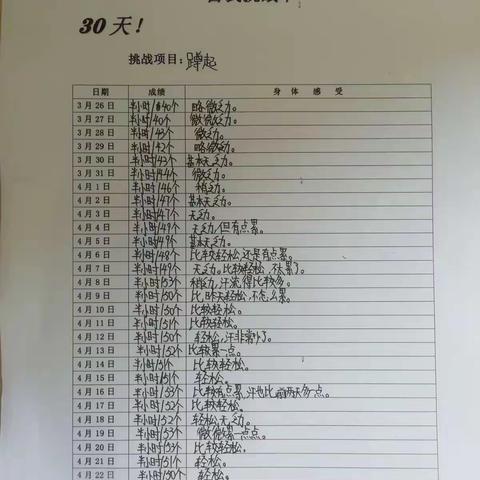 30 天！
挑战项目：蹲起
日期 成绩 身体感受
3月26日 半小时/40个 略微乏力。
3月27日 半小时/40个 微微乏力。
3月28日 半小时/43个 微乏力。
3月29日 半小时/42个 略微乏力。
3月30日 半小时/43个 基本无乏力。
3月31日 半小时/44个 微乏力。
4月1日 半小时/46个 稍乏力。
4月2日 半小时/47个 基本无乏力。
4月3日 半小时/47个 无乏力。
4月4日 半小时/49个 无乏力,但有点累。
4月5日 半小时/49个 基本无乏力。
4月6日 半小时/48个 比较轻松,还是有点累。
4月7日 半小时/49个 无乏力。比较轻松，不太累了。
4月8日 半小时/53个 稍乏力，汗流得比较多。
4月9日 半小时/50个 比昨天轻松，不怎么累。
4月10日 半小时/50个 比较轻松。
4月11日 半小时/51个 比较轻松。
4月12日 半小时/50个 轻松，汗非常少了。
4月13日 半小时/52个 比较累一点。
4月14日 半小时/51个 比较轻松。
4月15日 半小时/51个 轻松。
4月16日 半小时/53个 比较有点累，汗也比前两天多一点。
4月17日 半小时/52个 比较轻松。
4月18日 半小时/52个 轻松,无乏力。
4月19日 半小时/53个 微微累一点点。
4月20日 半小时/51个 比较轻松，
4月21日 半小时/51个 轻松。
4月22日 半小时/50个 轻松。